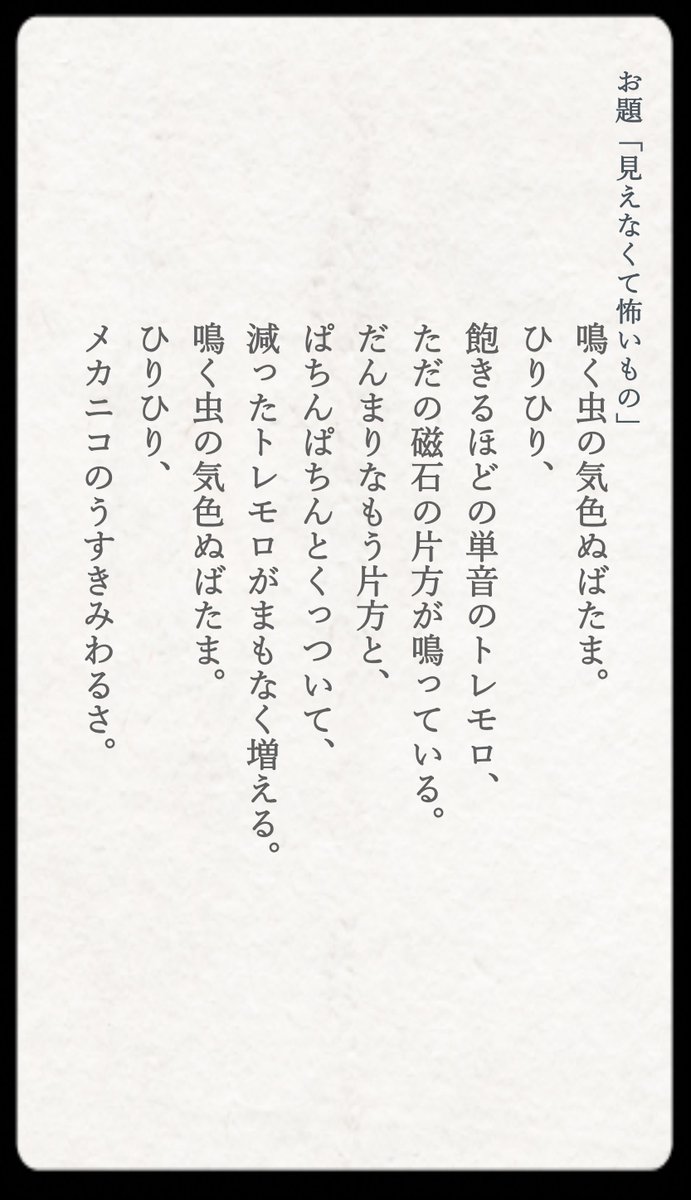 お題「見えなくて怖いもの」
鳴く虫の気色ぬばたま。
ひりひり、
飽きるほどの単音のトレモロ、
ただの磁石の片方が鳴っている。
だんまりなもう片方と、
ぱちんぱちんとくっついて、
減ったトレモロがまもなく増える。
鳴く虫の気色ぬばたま。
ひりひり、
メカニコのうすきみわるさ。